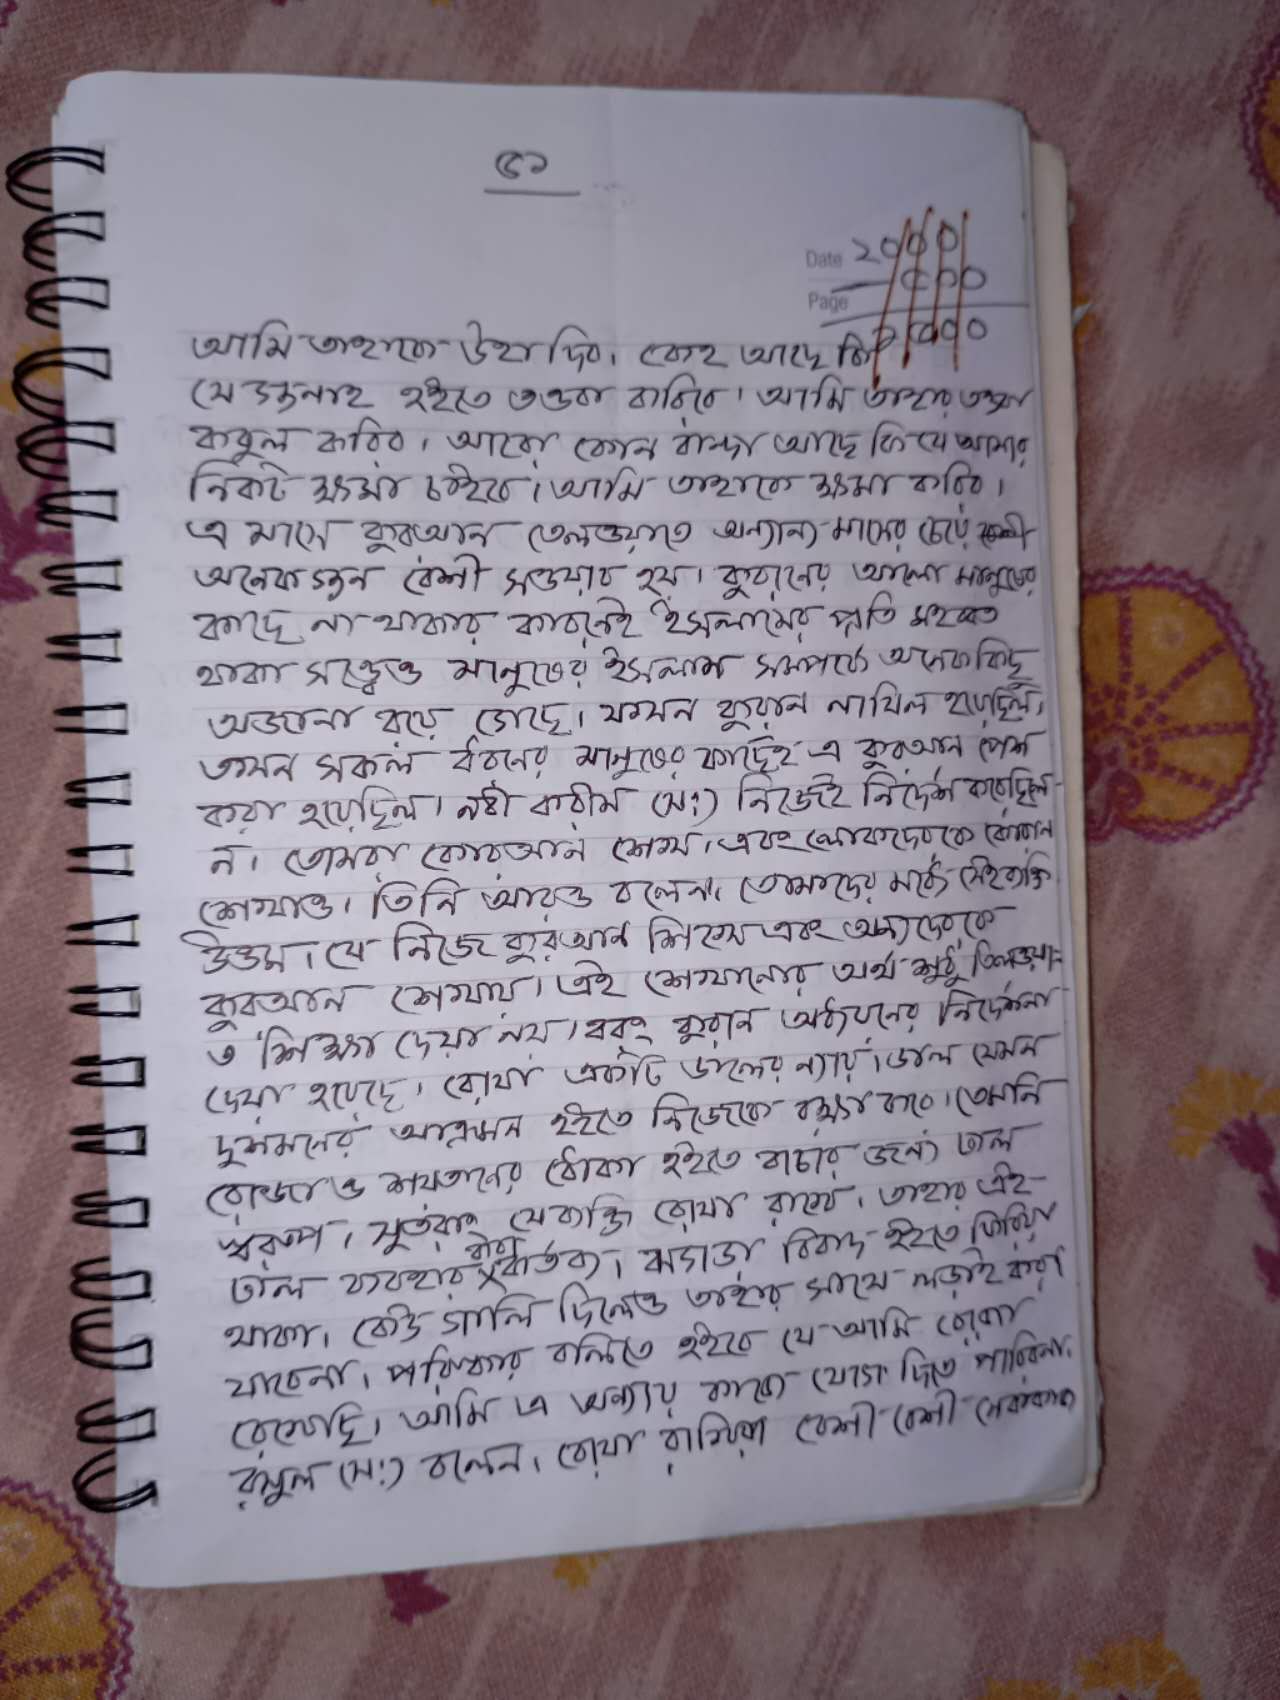 ৫১
Date ২০০০
৫০০
Page
২৫০০
আমি তাহাকে উহা দিব। কেহ আছে কি
যে গুনাহ হইতে তওবা করিবে। আমি তাহার তওবা
কবুল করিব। আরো কোন বান্দা আছে কি যে আমার
নিকট ক্ষমা চাইবে। আমি তাহাকে ক্ষমা করিব।
এ মাসে কুরআন তেলওয়াতে অন্যান্য মাসের চেয়ে
অনেক গুন বেশী সওয়াব হয়। কুরানের আলো মানুষের
কাছে না থাকার কারনেই ইসলামের প্রতি মহব্বত
থাকা সত্ত্বেও মানুষের ইসলাম সম্পর্কে অনেক কিছু
অজানা রয়ে গেছে। যখন কুরান নাযিল হয়েছিল,
তখন সকল ধরনের মানুষের কাছেই এ কুরআন পেশ
করা হয়েছিল। নবী করীম (সঃ) নিজেই নির্দেশ করেছিলে-
ন। তোমরা কোরআন শেখ। এবং লোকদেরকে কোরান
শেখাও। তিনি আরও বলেন। তোমাদের মধ্যে সেই ব্যক্তি
উত্তম। যে নিজে কুরআন শিখে এবং অন্যদেরকে
কুরআন শেখায়। এই শেখানোর অর্থ শুধু তিলওয়া-
ত শিক্ষা দেয়া নয়। বরং কুরান অধ্যয়নের নির্দেশনা
দেয়া হয়েছে। রোযা একটি ঢালের ন্যায়। ঢাল যেমন
দুশমনের আক্রমন হইতে নিজেকে রক্ষা করে। তেমনি
রোজাও শয়তানের ধোঁকা হইতে বাচার জন্য ঢাল
স্বরূপ। সুতরাং যে ব্যক্তি রোযা রাখে। তাহার এই-
ঢাল ব্যবহার করা কর্তব্য। ঝগড়া বিবাদ হইতে ফিরিয়া
থাকা। কেউ গালি দিলেও তাহার সাথে লড়াই করা
যাবেনা। পরিষ্কার বলিতে হইবে যে আমি রোযা
রেখেছি। আমি এ অন্যায় কাজে যোগ দিতে পারিবনা।
রসুল (সঃ) বলেন। রোযা রাখিয়া বেশী বেশী নেককাজ